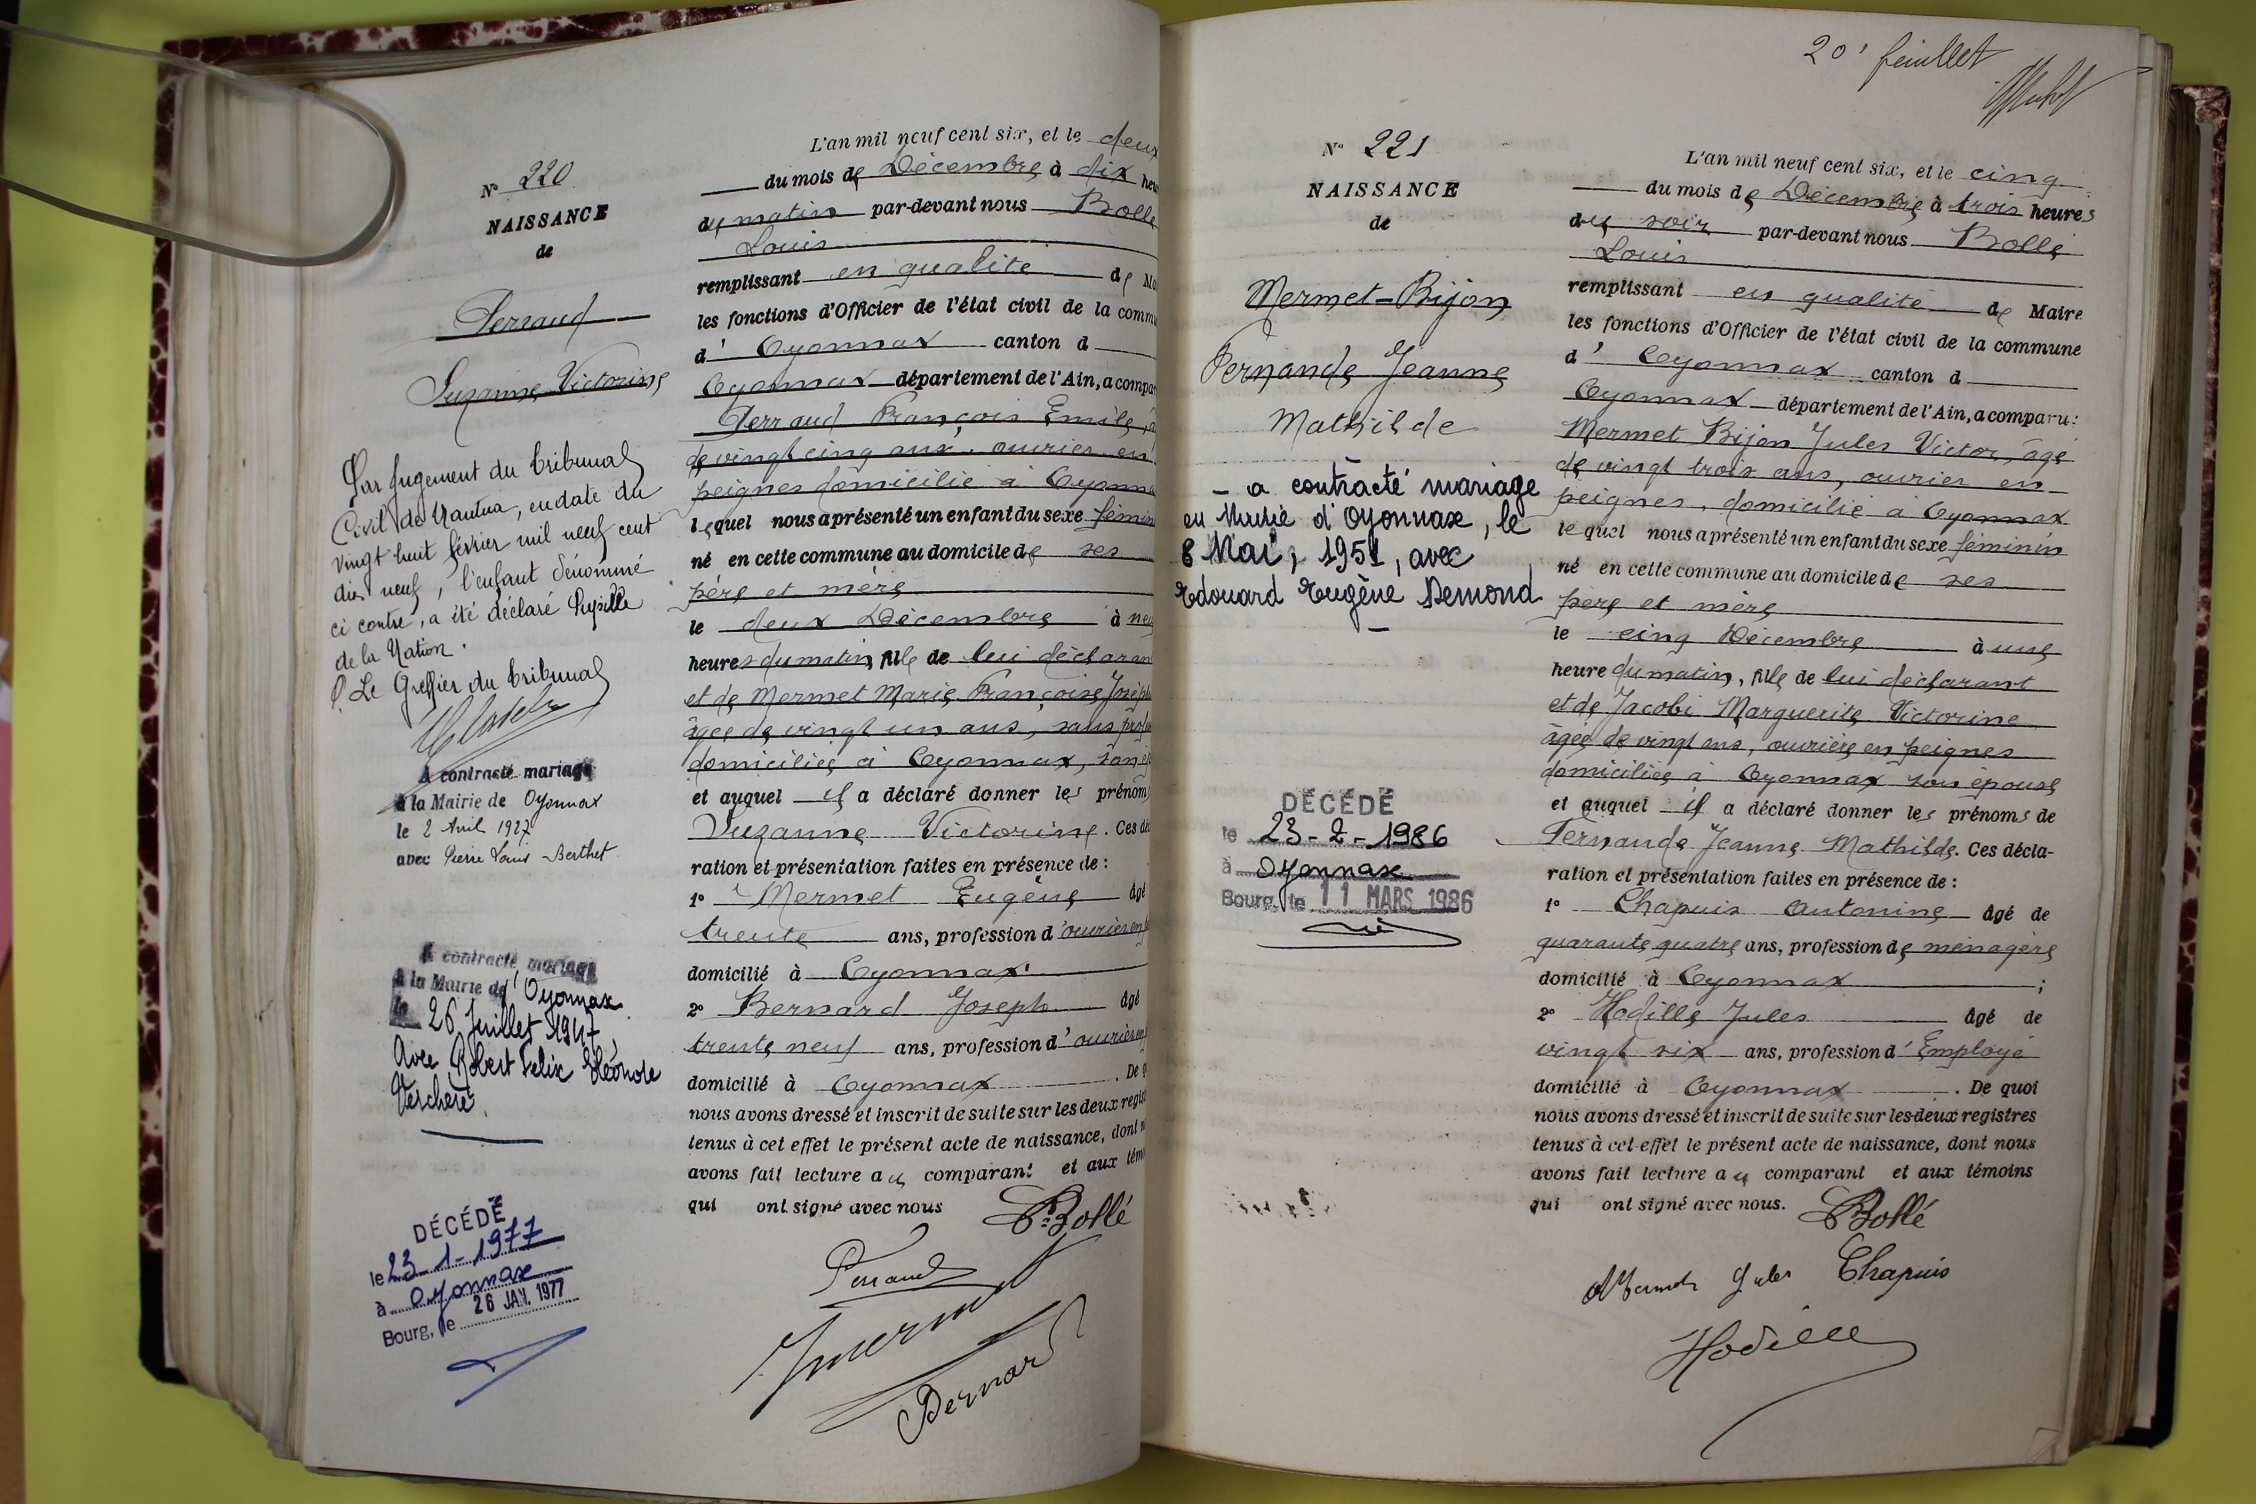 N° 220
NAISSANCE
de
Perraud
Suzanne Victorine
Par jugement du tribunal
Civil de Nantua, en date du
vingt huit février mil neuf cent
dix neuf, l'enfant dénommé
ci contre, a été déclaré Pupille
de la Nation.
P. Le Greffier du tribunal
A contracté mariage
à la Mairie de Oyonnax
le 2 Avril 1927
avec Pierre Louis Berthet
A contracté mariage
à la Mairie de d'Oyonnax
le 26 Juillet 1947
Avec Robert Felix Eléonore
Verchère.
DÉCÉDÉ
le 23-1-1977
à Oyonnax
Bourg, le 26 JAN. 1977
L'an mil neuf cent six, et le deux
du mois de Décembre à dix heu
du matin par-devant nous Bollé
Louis
remplissant en qualité de Ma
les fonctions d'Officier de l'état civil de la commu
d' Oyonnax canton d
Oyonnax département de l'Ain, a compar
Perraud François Emile, â
de vingt cinq ans, ouvrier en
peignes domicilié à Oyonna
lequel nous a présenté un enfant du sexe fémin
né en cette commune au domicile de ses
père et mère
le deux Décembre à neu
heures du matin, fille de lui déclaran
et de Mermet Marie Françoise Joséph
âgée de vingt un ans, sans profes
domiciliée à Oyonnax, son é
et auquel il a déclaré donner les prénoms
Suzanne Victorine. Ces déc
ration et présentation faites en présence de :
1° Mermet Eugène âgé
trente ans, profession d'ouvrier en
domicilié à Oyonnax
2° Bernard Joseph âgé
trente neuf ans, profession d'ouvrier en
domicilié à Oyonnax. De q
nous avons dressé et inscrit de suite sur les deux regis
tenus à cet effet le présent acte de naissance, dont n
avons fait lecture au comparant et aux témo
qui ont signé avec nous Bollé
Perraud
Mermet
Bernard
20e feuillet
N° 221
NAISSANCE
de
Mermet-Bijon
Fernande Jeanne
Mathilde
- a contracté mariage
en Mairie d'Oyonnax, le
8 Mai, 1951, avec
Edouard Eugène Demond
DÉCÉDÉ
le 23-2-1986
à Oyonnax
Bourg, le 11 MARS 1986
L'an mil neuf cent six, et le cinq
du mois de Décembre à trois heures
du soir par-devant nous Bollé
Louis
remplissant en qualité de Maire
les fonctions d'Officier de l'état civil de la commune
d' Oyonnax canton d
Oyonnax département de l'Ain, a comparu :
Mermet Bijon Jules Victor, âgé
de vingt trois ans, ouvrier en
peignes, domicilié à Oyonnax
lequel nous a présenté un enfant du sexe féminin
né en cette commune au domicile de ses
père et mère
le cinq Décembre à une
heure du matin, fille de lui déclarant
et de Jacobi Marguerite Victorine
âgée de vingt ans, ouvrière en peignes
domiciliée à Oyonnax son épouse
et auquel il a déclaré donner les prénoms de
Fernande Jeanne Mathilde. Ces décla-
ration et présentation faites en présence de :
1° Chapuis Antonine âgé de
quarante quatre ans, profession de ménagère
domicilié à Oyonnax ;
2° Hodille Jules âgé de
vingt six ans, profession d'Employé
domicilié à Oyonnax. De quoi
nous avons dressé et inscrit de suite sur les deux registres
tenus à cet effet le présent acte de naissance, dont nous
avons fait lecture au comparant et aux témoins
qui ont signé avec nous. Bollé
Mermet Jules Chapuis
Hodille